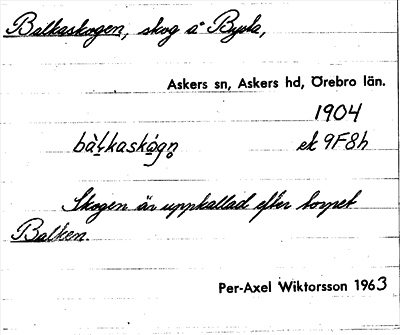 Balkaskogen, skog å Bysta,
Askers sn, Askers hd, Örebro län.
1904
bàlkaskógn̥ ek 9F8h
Skogen är uppkallad efter torpet
Balken.
Per-Axel Wiktorsson 1963